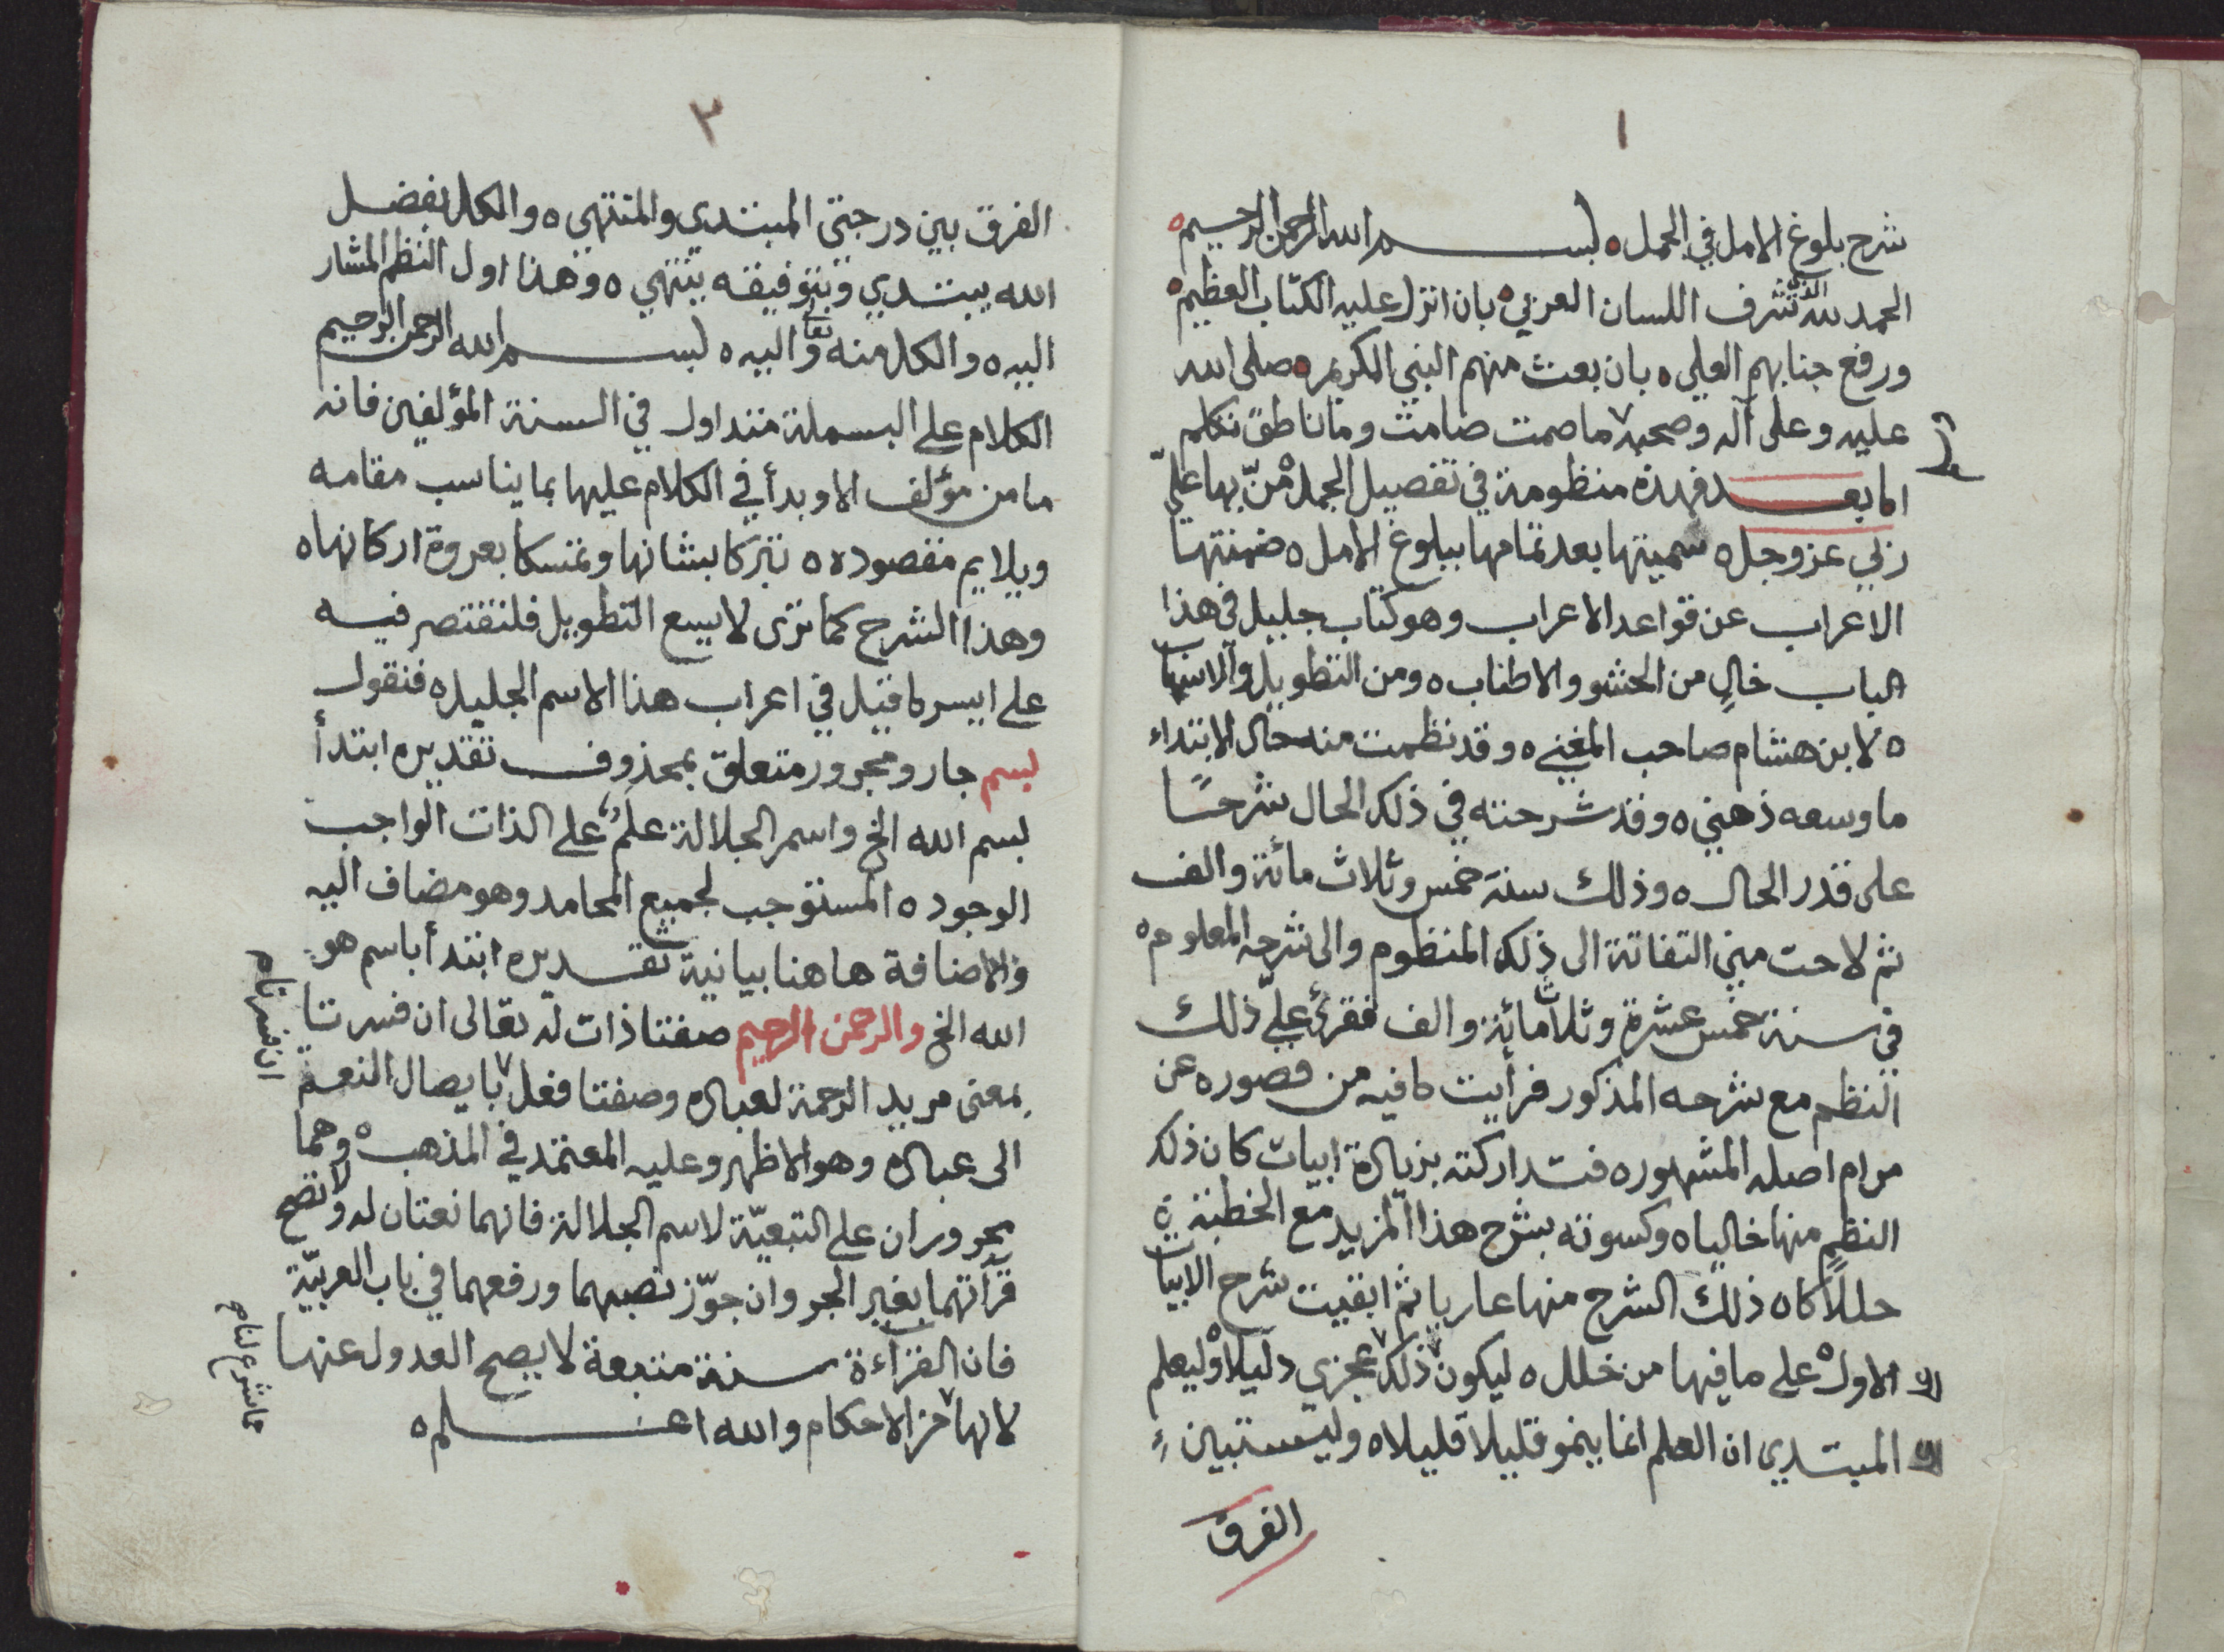 ١
شرح بلوغ الامل في الجمل ه بسم الله الرحمن الرحيم ه
الحمد لله الذي شرف اللسان العربي ه بان انزل عليه الكتاب العظيم ه
ورفع جنابهم العلي ه بان بعث منهم النبي الكريم ه صلى الله
عليه وعلى آله وصحبه ما صمت صامت وما ناطق تكلم
اما بعد فهذه منظومة في تفصيل الجمل ه منّ بها عليّ
ربي عز وجل ه سميتها بعد تمامها ببلوغ الامل ه ضمنتها
الاعراب عن قواعد الاعراب وهو كتاب جليل في هذا
الباب خالٍ من الحشو والاطناب ه ومن التطويل والاسهاب
ه لابن هشام صاحب المغني ه وقد نظمت منه حال الابتداء
ما وسعه ذهني ه وقد شرحته في ذلك الحال شرحًا
على قدر الحال ه وذلك سنة خمس وثلاث مائة والف
ثم لاحت مني التفاتة الى ذلك المنظوم والى شرحه المعلوم ه
في سنة خمس عشرة وثلاثمائة والف فقرئ عليّ ذلك
النظم مع شرحه المذكور فرأيت ما فيه من قصوره عن
مرام اصله المشهور ه فتداركته بزيادة ابيات كان ذلك
النظم منها خاليا ه وكسوته بشرح هذا المزيد مع الخطبة
حللاً كان ذلك الشرح منها عاريا ثم ابقيت شرح الابيات
الاول ه على ما فيها من خلل ه ليكون ذلك عجزي دليلا ه وليعلم
المبتدي ان العلم انما ينمو قليلا قليلا ه وليستبين
الفرق
٢
الفرق بين درجتي المبتدي والمنتهي ه والكل بفضل
الله يبتدي وبتوفيقه ينتهي ه وهذا اول النظم المشار
اليه ه والكل منه تعالى واليه ه بسم الله الرحمن الرحيم
الكلام على البسملة متداول في السنة المؤلفين فانه
ما من مؤلف الا وبدأ في الكلام عليها بما يناسب مقامه
ويلايم مقصوده ه تبركا بشانها وتمسكا بعروة اركانها ه
وهذا الشرح كما ترى لا يسع التطويل فلنقتصر فيه
على ايسر ما قيل في اعراب هذا الاسم الجليل ه فنقول
بسم جار ومجرور متعلق بمحذوف تقديره ابتدأ
بسم الله الخ واسم الجلالة علمٌ على الذات الواجب
الوجود ه المستوجب لجميع المحامد وهو مضاف اليه
والاضافة هاهنا بيانية تقديره ابتدأ باسم هو
الله الخ والرحمن الرحيم صفتا ذات له تعالى ان فسرتا
بمعنى مريد الرحمة لعباده وصفتا فعل بايصال النعم
الى عباده وهو الاظهر وعليه المعتمد في المذهب ه وهما
مجروران على التبعيّة لاسم الجلالة فانهما نعتان له ولا تصح
قرآتهما بغير الجر وان جوّز نصبهما ورفعهما في باب العربيّة
فان القراءة سنة متبعة لا يصح العدول عنها
لانها من الاحكام والله اعلم ه
ان فسرتاه